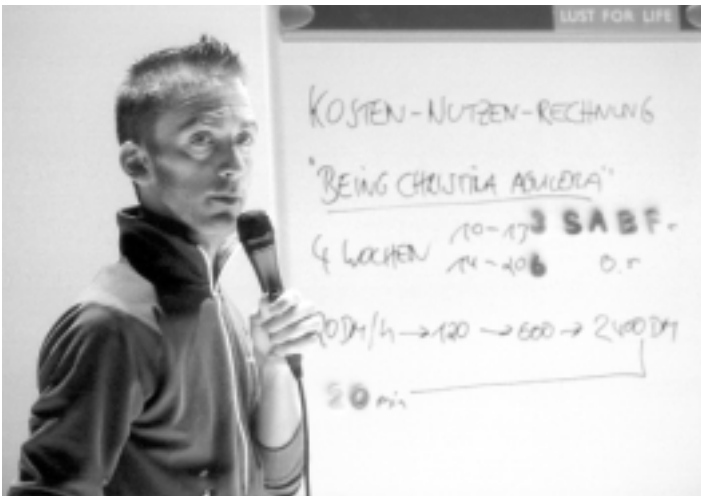 LUST FOR LIFE
KOSTEN-NUTZEN-RECHNUNG
"BEING CHRISTINA AGUILERA"
4 WOCHEN 10-13 3 SABF.
14-20 6 O.r
0 DM/h → 120 → 600 → 2400 DM
20 min